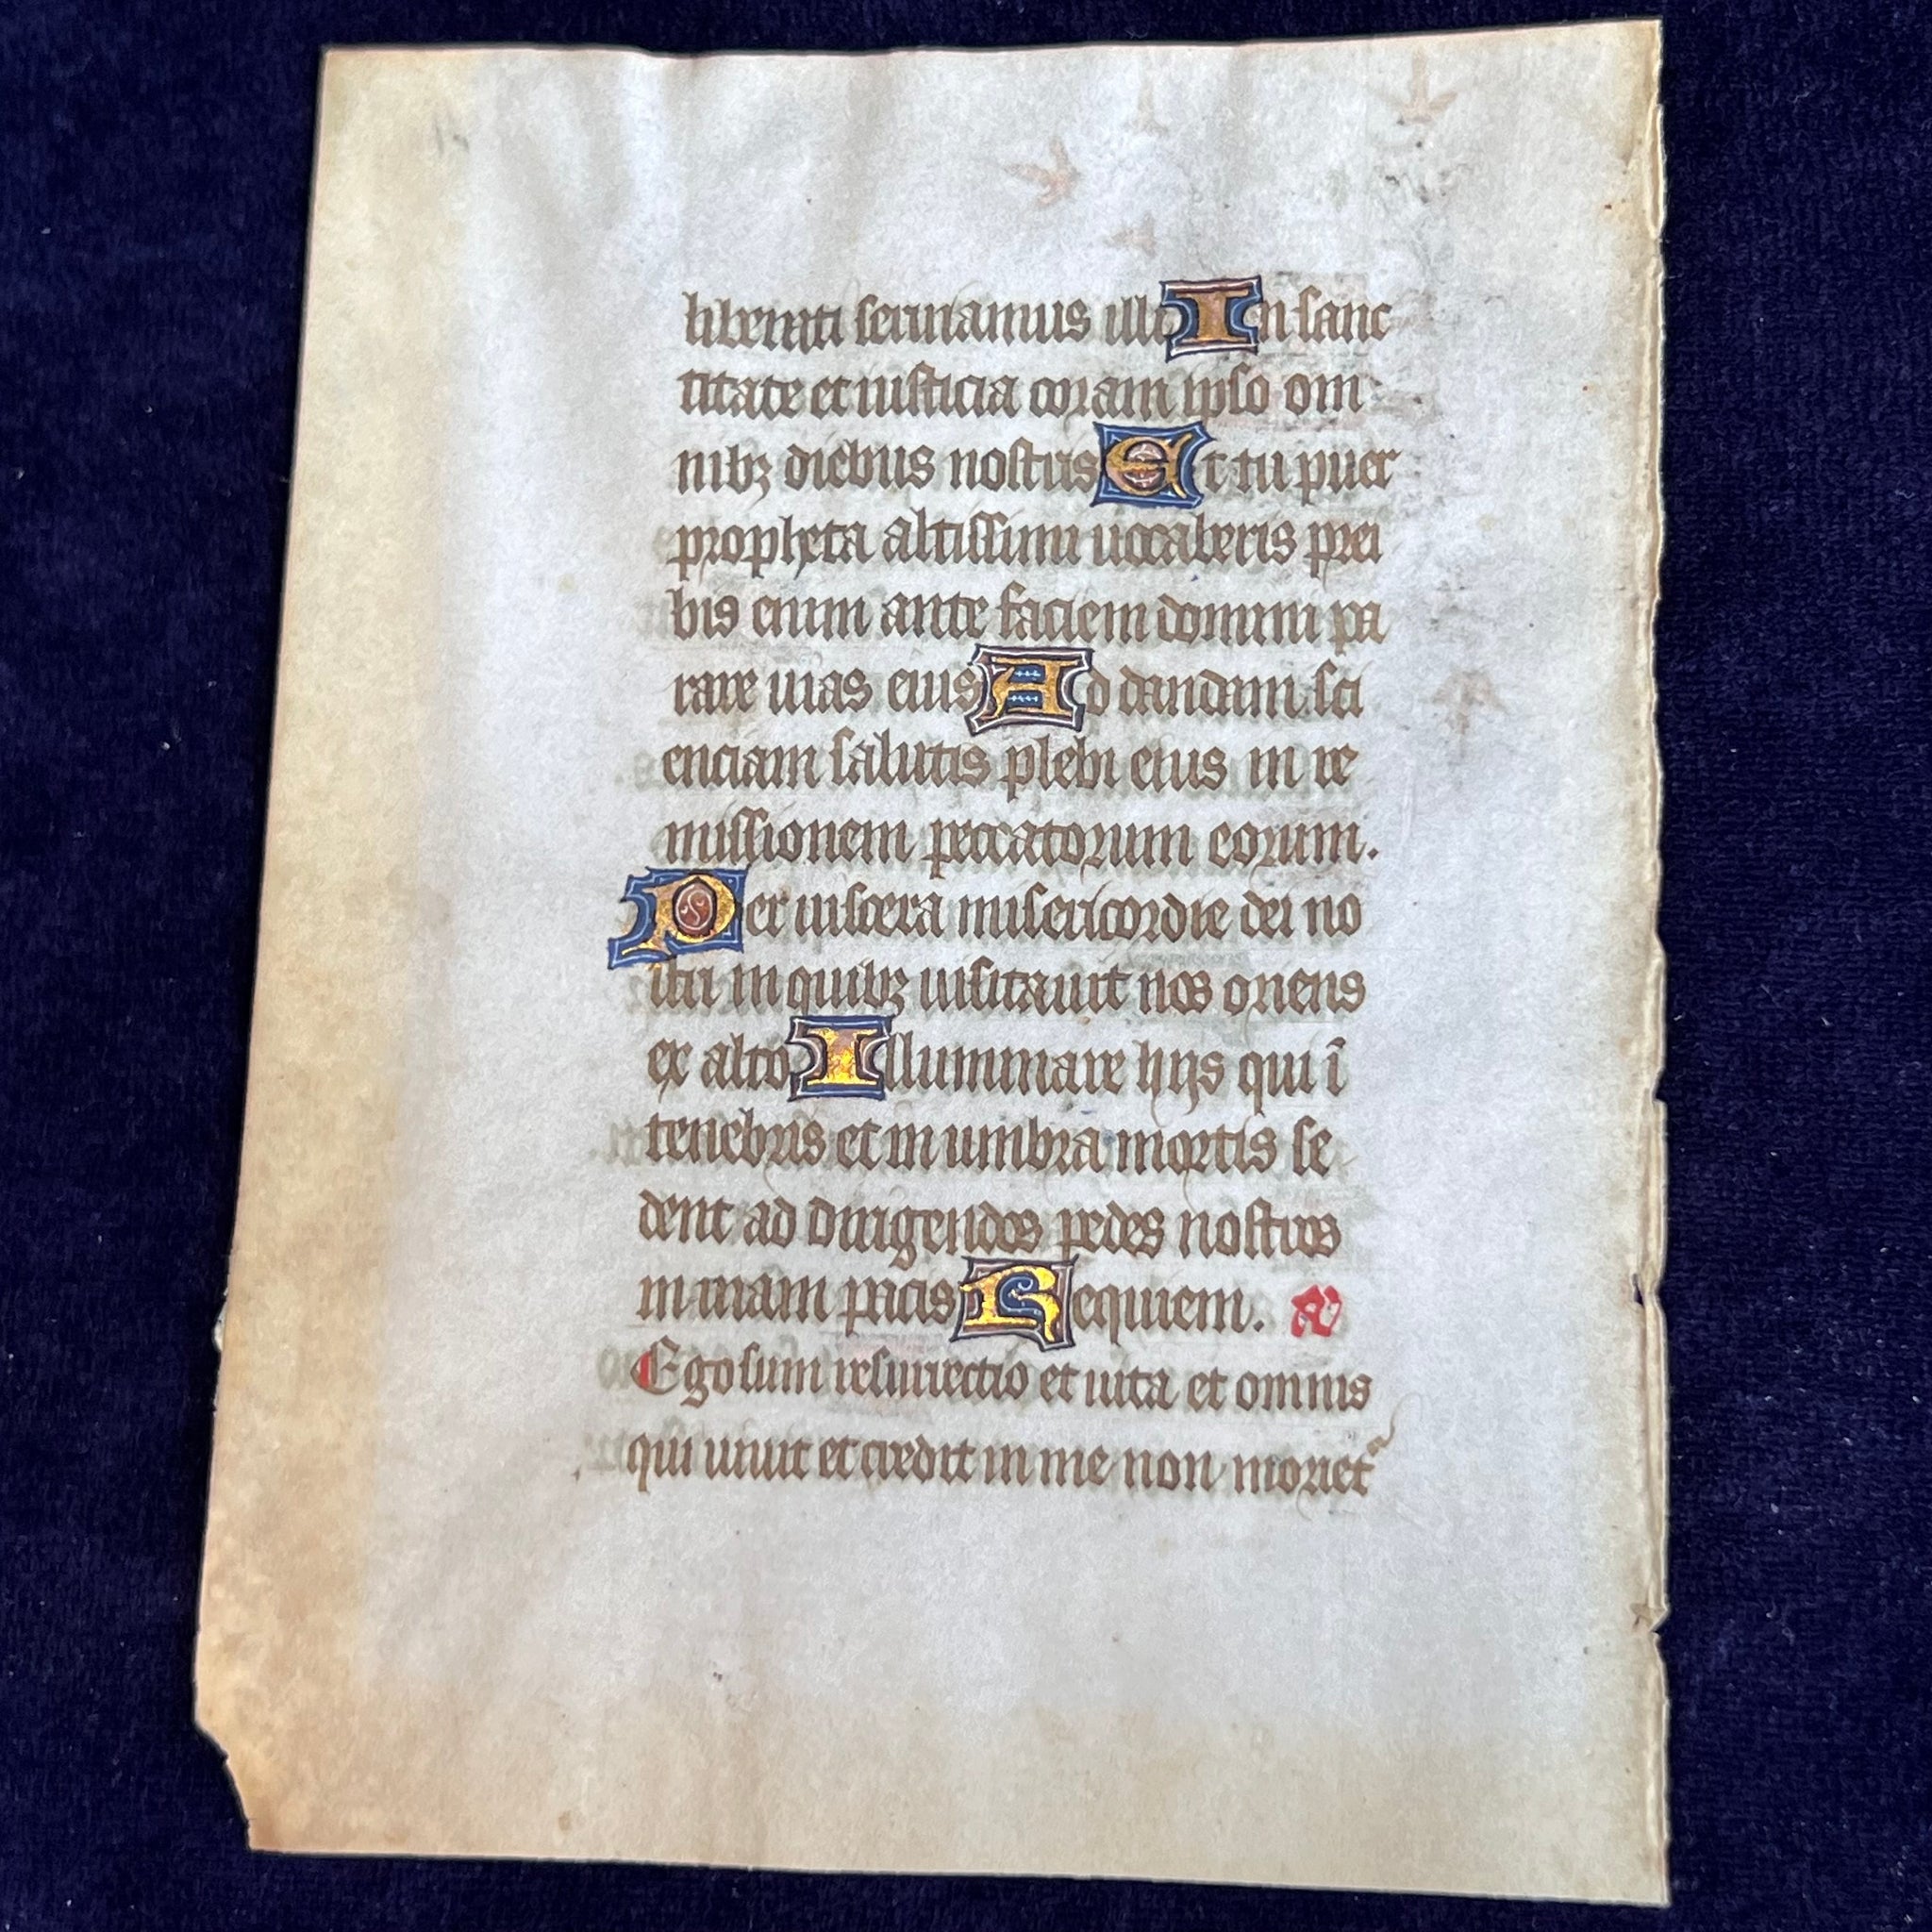 liberati seruiamus illi In sanc
titate et iusticia coram ipso om
nibꝫ diebus nostris Et tu puer
propheta altissimi uocaberis prei
bis enim ante faciem domini pa
rare uias eius Ad dandam sci
enciam salutis plebi eius in re
missionem peccatorum eorum.
Per uiscera misericordie dei no
stri in quibꝫ uisitauit nos oriens
ex alto Illuminare hijs qui ī
tenebris et in umbra mortis se
dent ad dirigendos pedes nostros
in uiam pacis Requiem. añ
Ego sum resurrectio et uita et omnis
qui uiuit et credit in me non morietᷓ